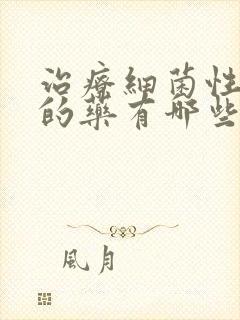 治療細菌性
的藥有哪些
風月